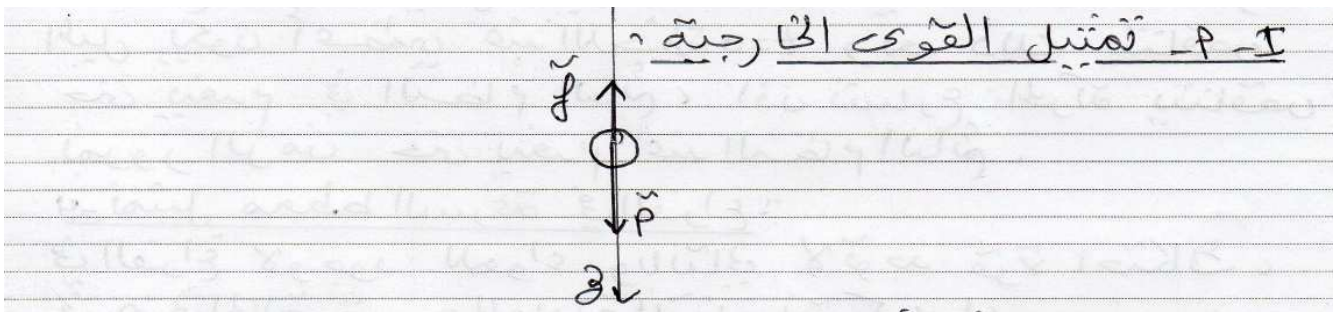 I - P - تمثيل القوى الخارجية :
f
P
z